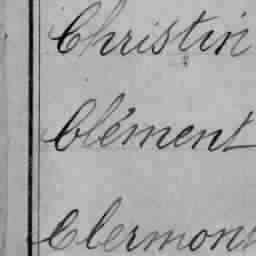 Christin
Clément
Clermons